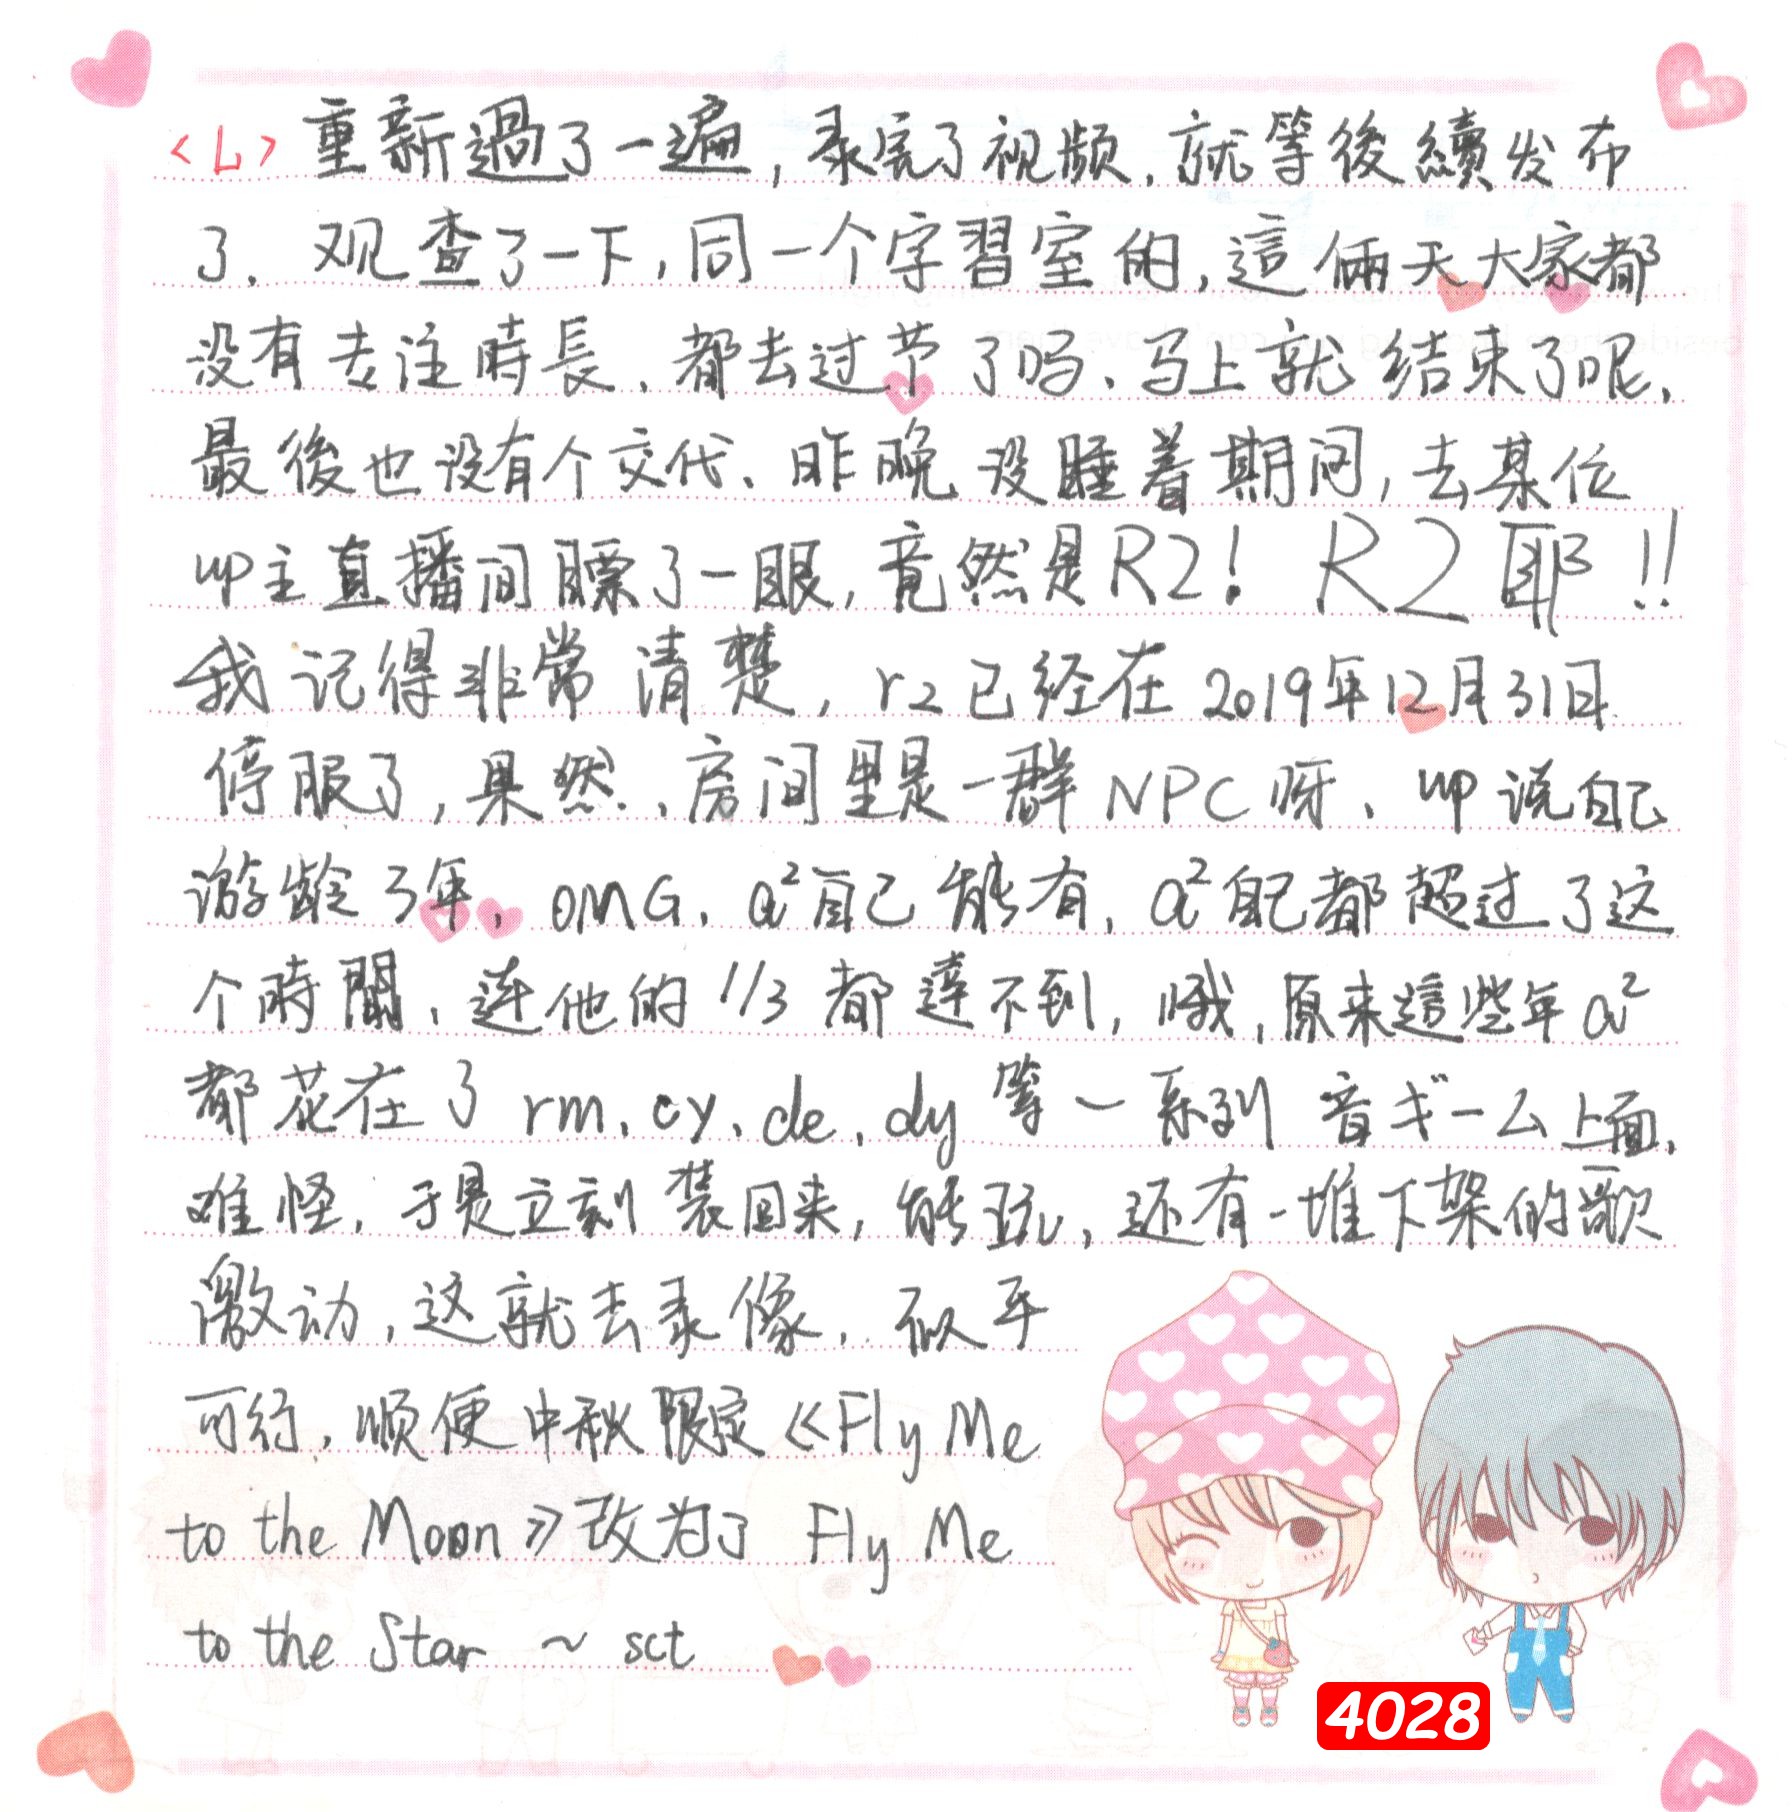 <L> 重新過了一遍，录完了视频，就等後續发布
了。观查了一下，同一个字習室的，這倆天大家都
没有专注時長，都去过节了吗、马上就结束了呢，
最後也没有个交代、昨晚没睡着期间，去某位
up主直播间瞟了一眼，竟然是R2！ R2耶！！
我记得非常清楚，r2已经在2019年12月31日
停服了，果然，房间里是一群NPC呀、up说自己
游龄3年，OMG，a²自己能有，a²自己都超过了这
个時間，连他的1/3都達不到，哦，原来這些年a²
都花在了rm、cy、de、dy等一系列音ギーム上面，
难怪，于是立刻装回来，能玩，还有一堆下架的歌
激动，这就去录像，似乎
可行，顺便中秋限定《Fly Me
to the Moon》改为了 Fly Me
to the Star ~ sct
4028